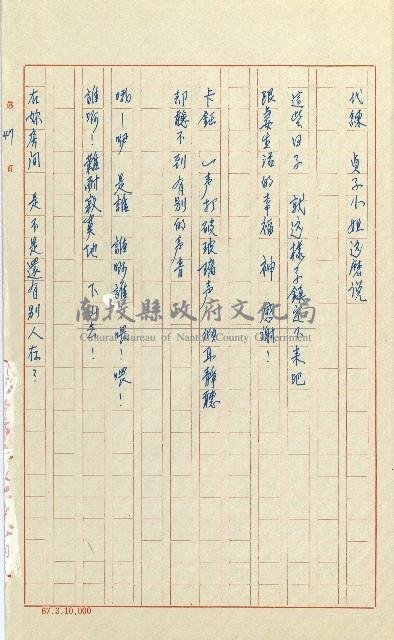 代綠　貞子小姐这麽说
這些日子　就这樣子鎮定下来吧
跟妻生活的幸福　神　感謝！
卡鉦　一声打破玻璃声　倾耳靜聽
却聽不到有別的声音
哦—呀　是誰　誰啊誰　喂！喂！
誰啊！難耐寂寞地　下去！
在妳房间　是不是還有別人在？
第 州 頁
67.3.10,000
南投縣政府文化局
Cultural Bureau of Nantou County Government